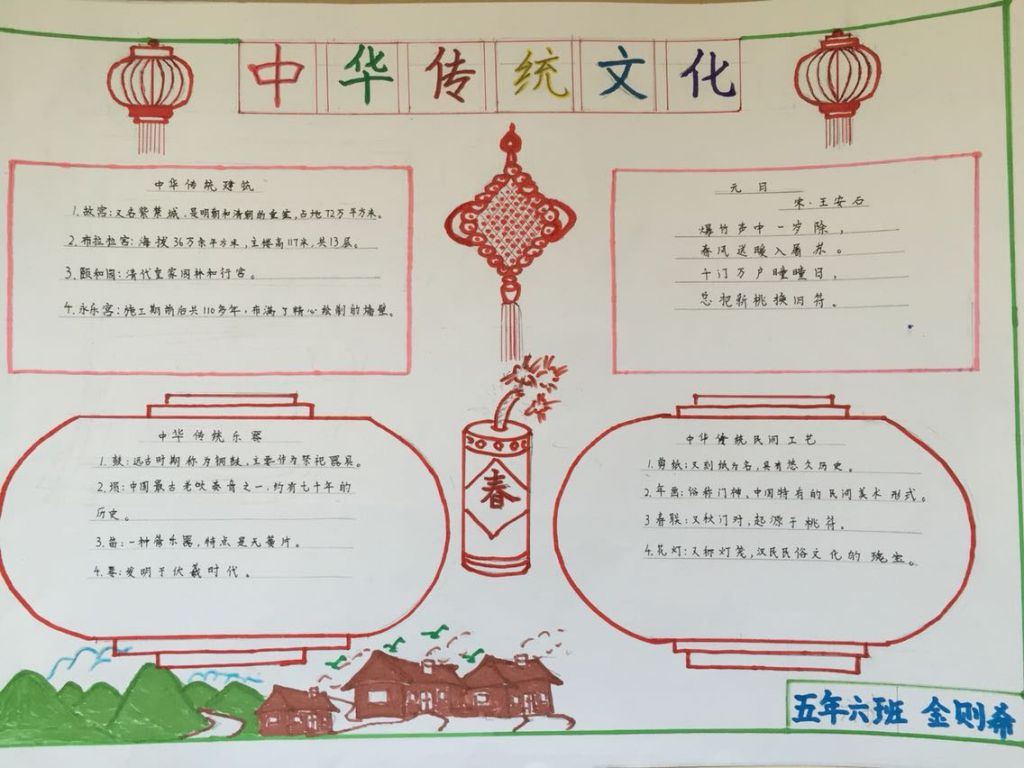 中华传统文化
中华传统建筑
1.故宫:又名紫禁城.是明朝和清朝的皇宫,占地72万平方米。
2.布拉拉宫:海拔36万余平方米,主楼高117米,共13层。
3.颐和园:清代皇家园林和行宫。
4.永乐宫:施工期前后共110多年,布满了精心绘制的墙壁。
元日
宋·王安石
爆竹声中一岁除,
春风送暖入屠苏。
千门万户曈曈日,
总把新桃换旧符。
中华传统乐器
1.鼓:远古时期称为铜鼓,主要作为祭祀器具。
2.埙:中国最古老吹奏音之一.约有七千年的
历史。
3.笛:一种管乐器,特点是无簧片。
4.琴:发明于伏羲时代。
春
中华传统民间工艺
1.剪纸:又刻纸为名,具有悠久历史。
2.年画:俗称门神、中国特有的民间美术形式。
3春联:又秋门对,起源于桃符。
4.花灯:又称灯笼,汉民民俗文化的瑰宝。
五年六班 金则希